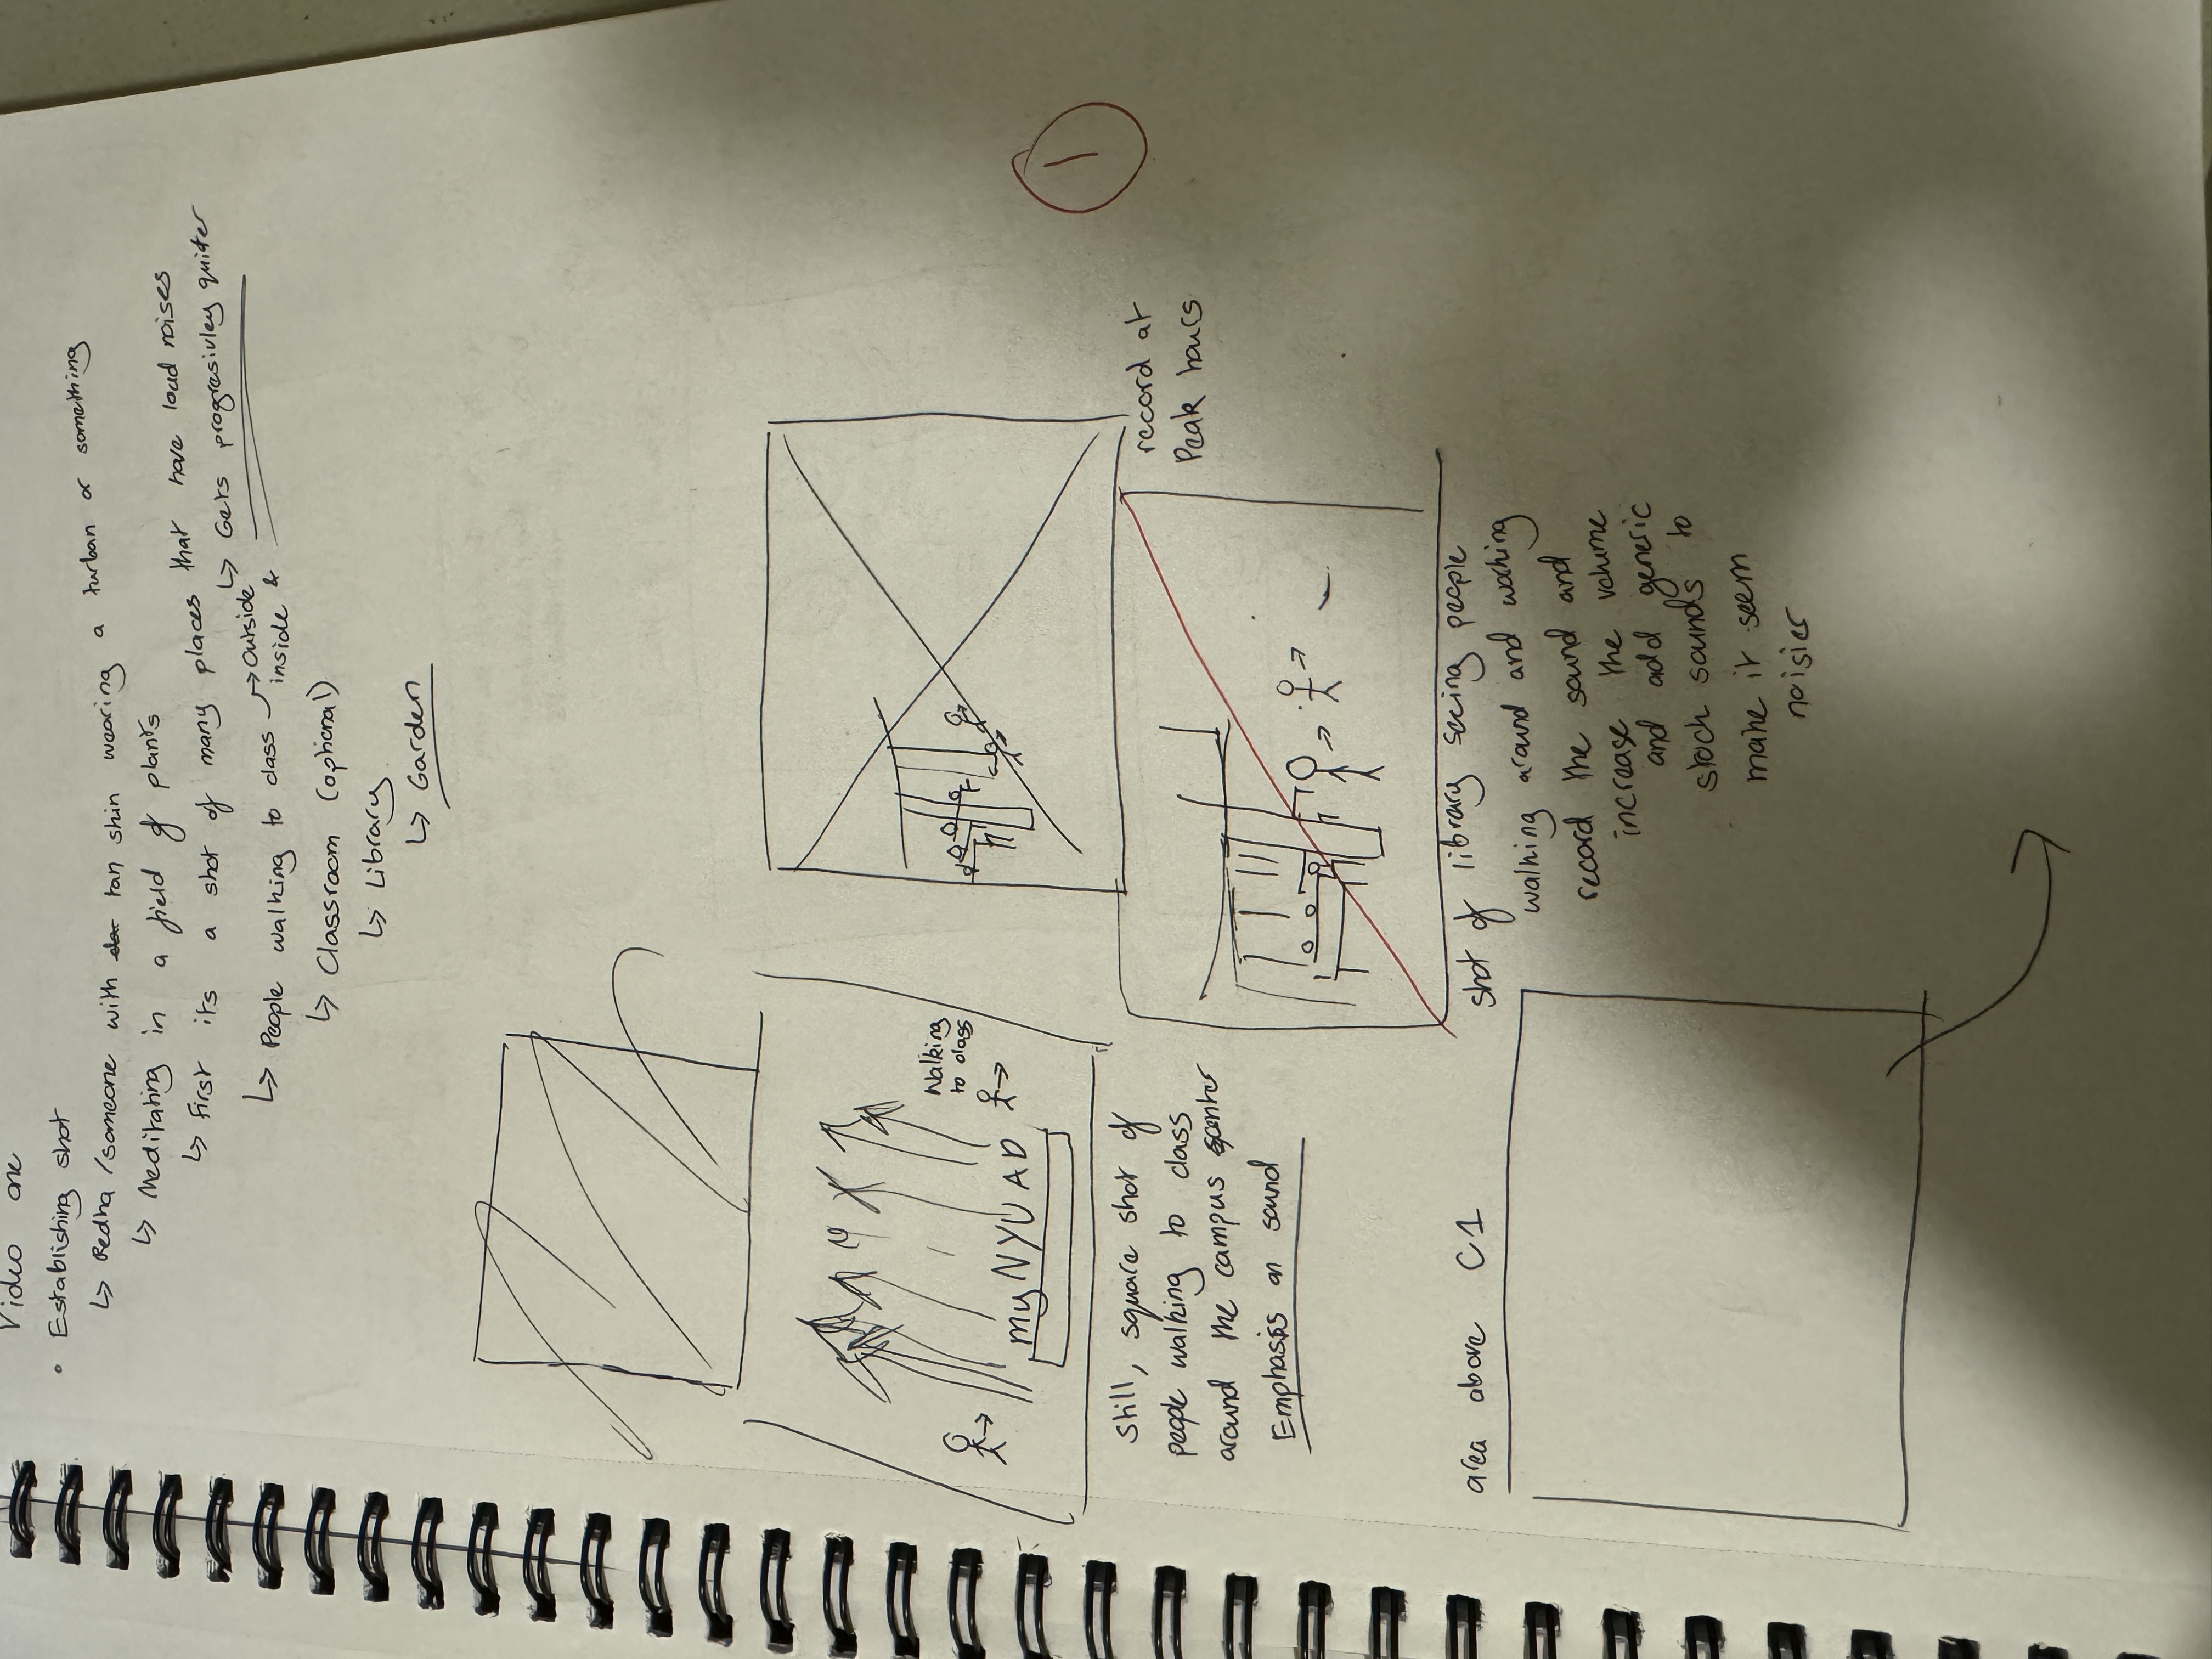 Video one
• Establishing shot
↳ Redha /someone with dar tan skin wearing a turban or something
↳ Meditating in a field of plants
↳ First its a shot of many places that have loud noises
↳ Gets progresivley quiter
↳ People walking to class → Outside
inside &
↳ Classroom (optional)
↳ Library
↳ Garden
Walking
to class
my NYUAD
still, square shot of
people walking to class
around the campus center
Emphasis on sound
record at
Peak hours
1
shot of library seeing people
walking around and working
record the sound and
increase the volume
and add generic
stock sounds to
make it seem
noisier
area above C1